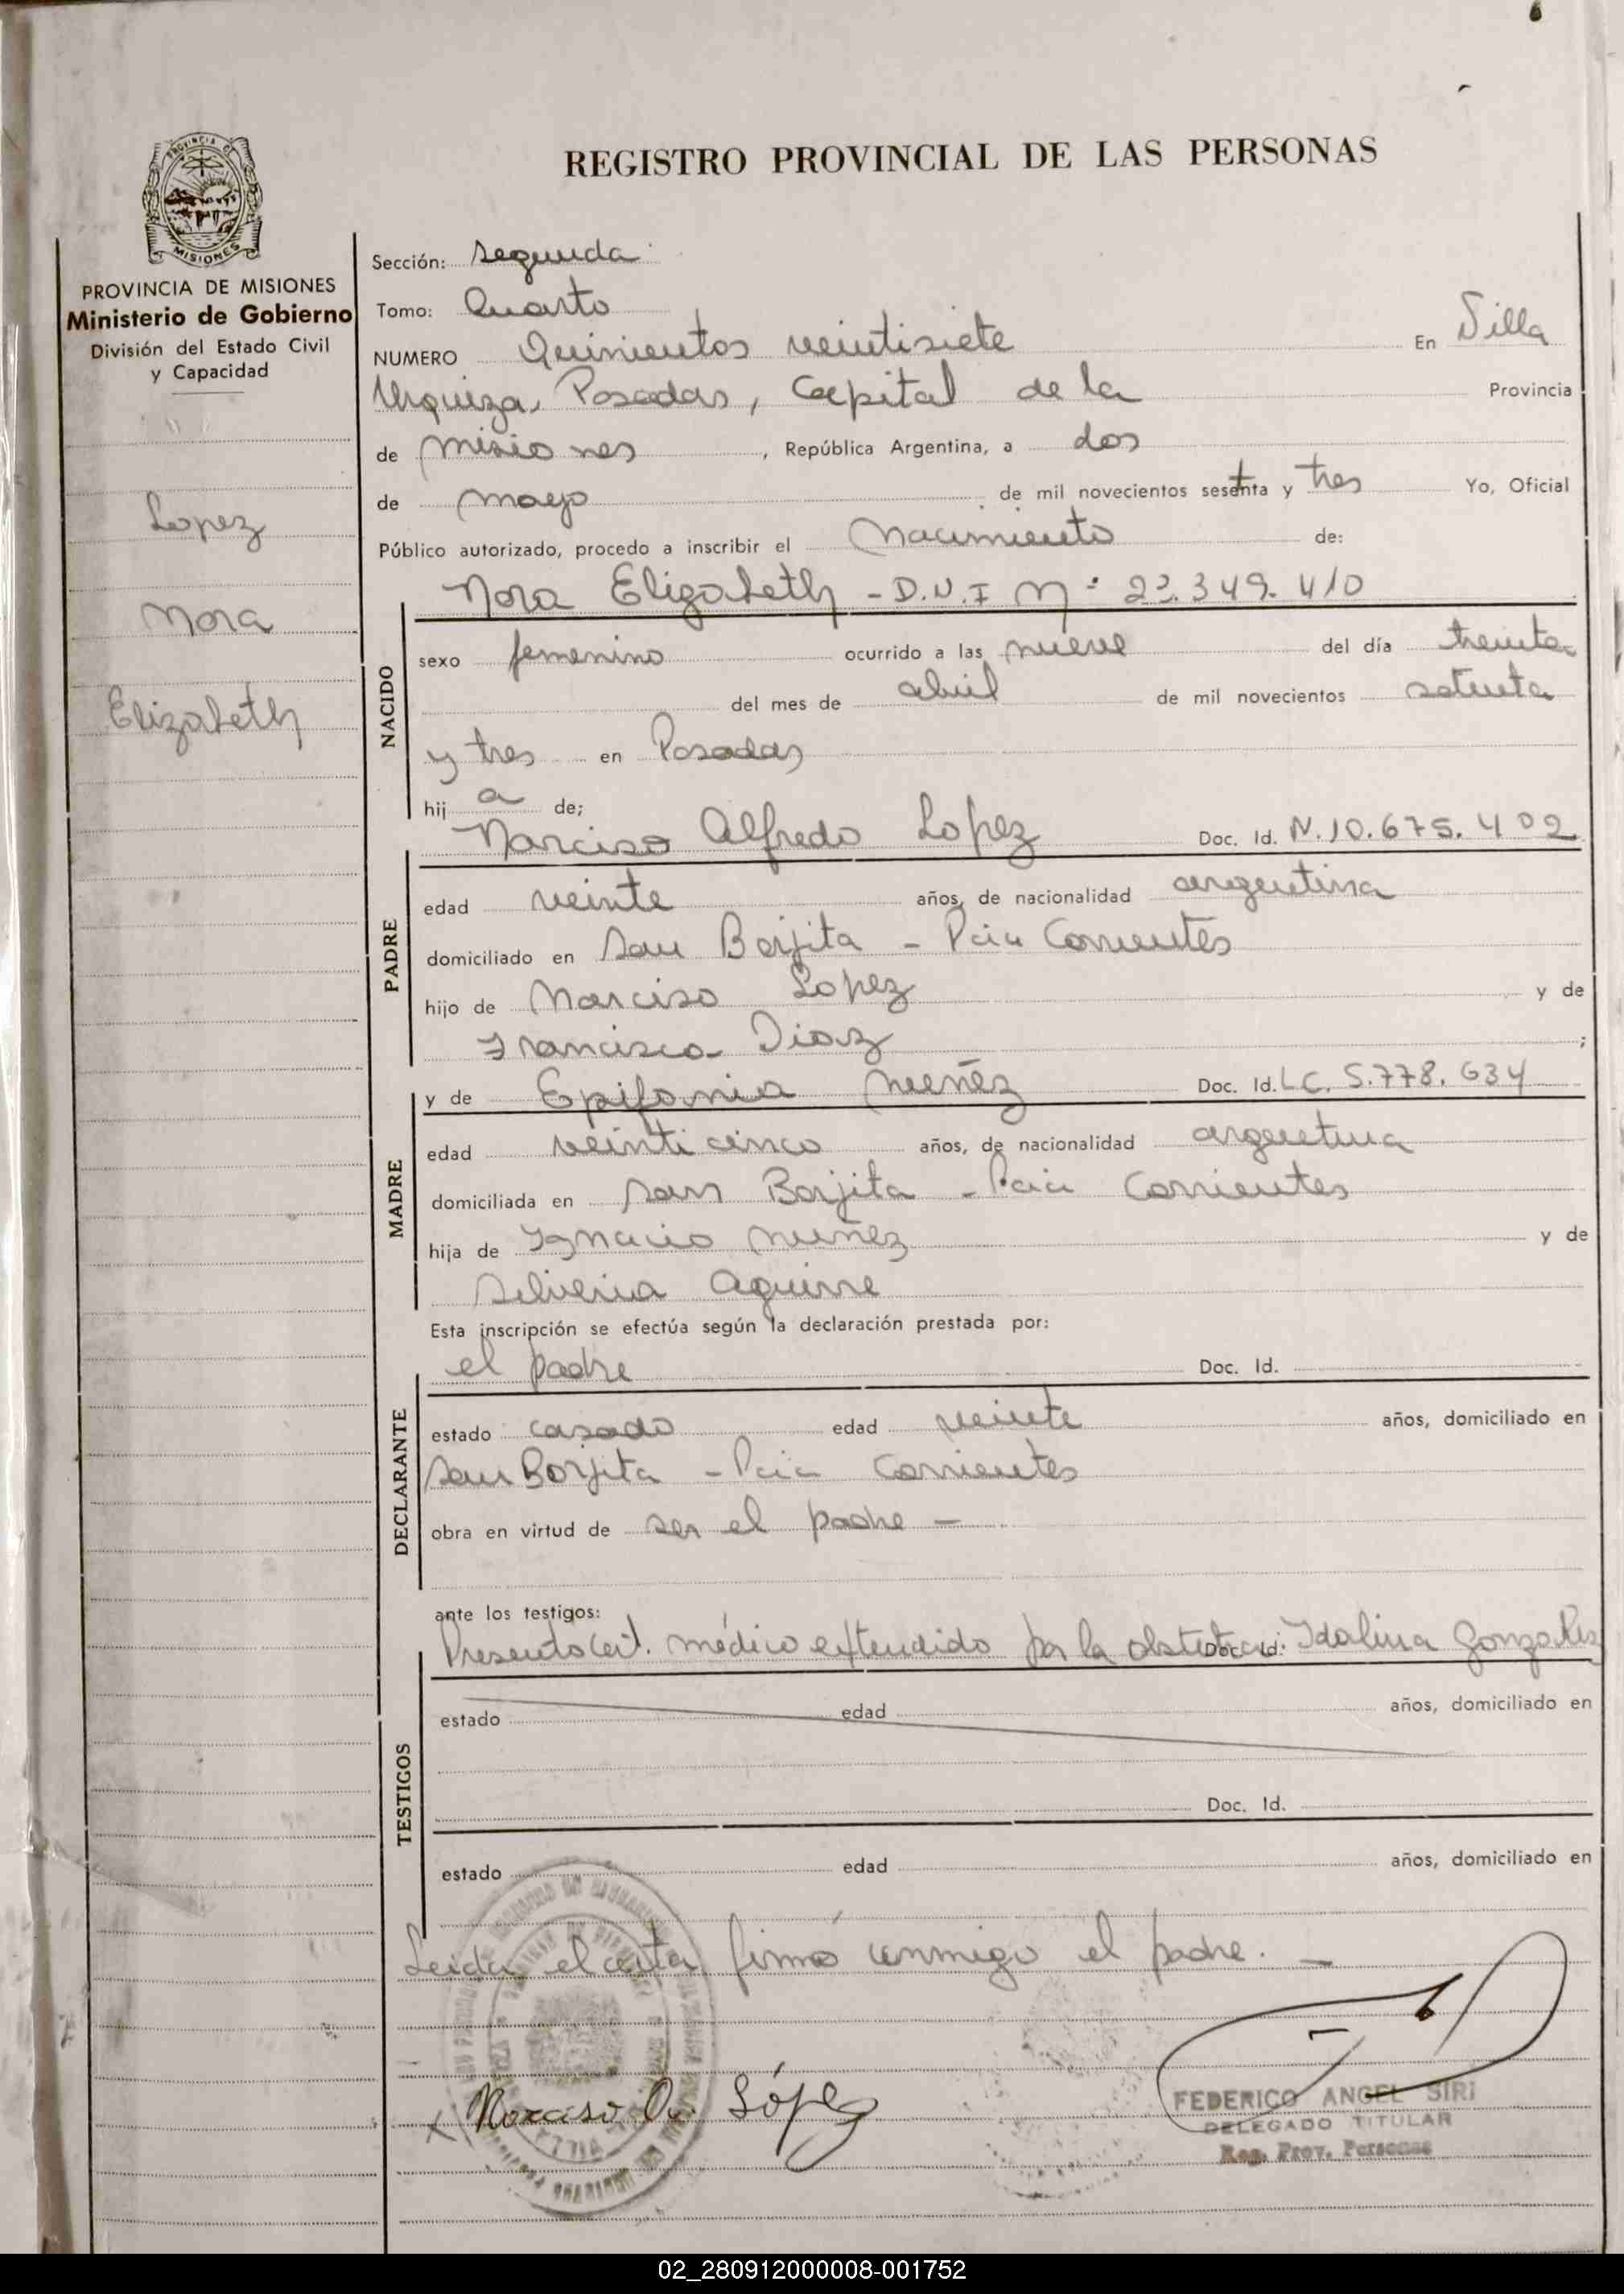 REGISTRO PROVINCIAL DE LAS PERSONAS
PROVINCIA DE MISIONES
Ministerio de Gobierno
División del Estado Civil
y Capacidad
Lopez
Nora
Elizabeth
Sección: Segunda
Tomo: Cuarto
NUMERO Quinientos veintisiete En Villa
Urquiza, Posadas, Capital de la Provincia
de Misiones, República Argentina, a dos
de mayo de mil novecientos sesenta y tres Yo, Oficial
Público autorizado, procedo a inscribir el Nacimiento de:
Nora Elizabeth - D.N.I Nº 23.349.410
NACIDO
sexo femenino ocurrido a las nueve del día treinta
del mes de abril de mil novecientos setenta
y tres en Posadas
hij a de;
Narciso Alfredo Lopez Doc. Id. N.10.675.402
PADRE
edad veinte años, de nacionalidad argentina
domiciliado en San Borjita - Pcia Corrientes
hijo de Narciso Lopez y de
Francisca Diaz ;
y de Epifania Nuñez Doc. Id. LC. 5.778.634
MADRE
edad veinticinco años, de nacionalidad argentina
domiciliada en San Borjita - Pcia Corrientes
hija de Ignacio Nuñez y de
Silveria Aguirre
Esta inscripción se efectúa según la declaración prestada por:
el padre Doc. Id.
DECLARANTE
estado casado edad veinte años, domiciliado en
San Borjita - Pcia Corrientes
obra en virtud de ser el padre -
ante los testigos:
Presento Cert. médico extendido por la obstetra Doc. Id. Idalina Gonzalez
TESTIGOS
estado edad años, domiciliado en
Doc. Id.
estado edad años, domiciliado en
Leida el acta firmó conmigo el padre. -
Narciso A. López
FEDERICO ANGEL SIRI
DELEGADO TITULAR
Reg. Prov. Personas
02_280912000008-001752